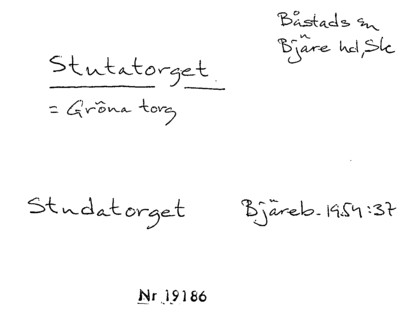 Båstads sn
Bjäre hd, Sk
Stutatorget
= Gröna torg
Studatorget Bjäreb. 1954:37
Nr 19186